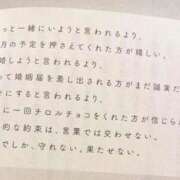 っと一緒にいようと言われるより、
月の予定を押さえてくれた方が嬉しい。
婚しようと言われるより、
って婚姻届を差し出される方がまだ誠実だ
せにすると言われるより、
に一回チロルチョコをくれた方が信じら
的な約束は、言葉では交わせない。
でしか、守れない。果たせない。